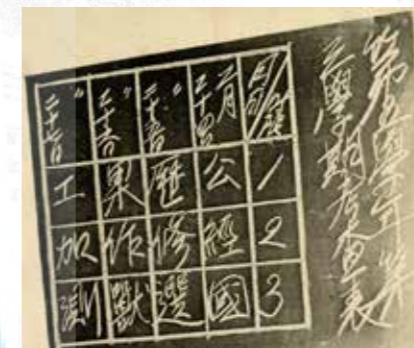 第五學年第
學期考查表
1 2 3
月二十四日 公 經 國
〃二十五日 歷 修 選
〃二十六日 果 作 獸
〃二十七日 工 加 測